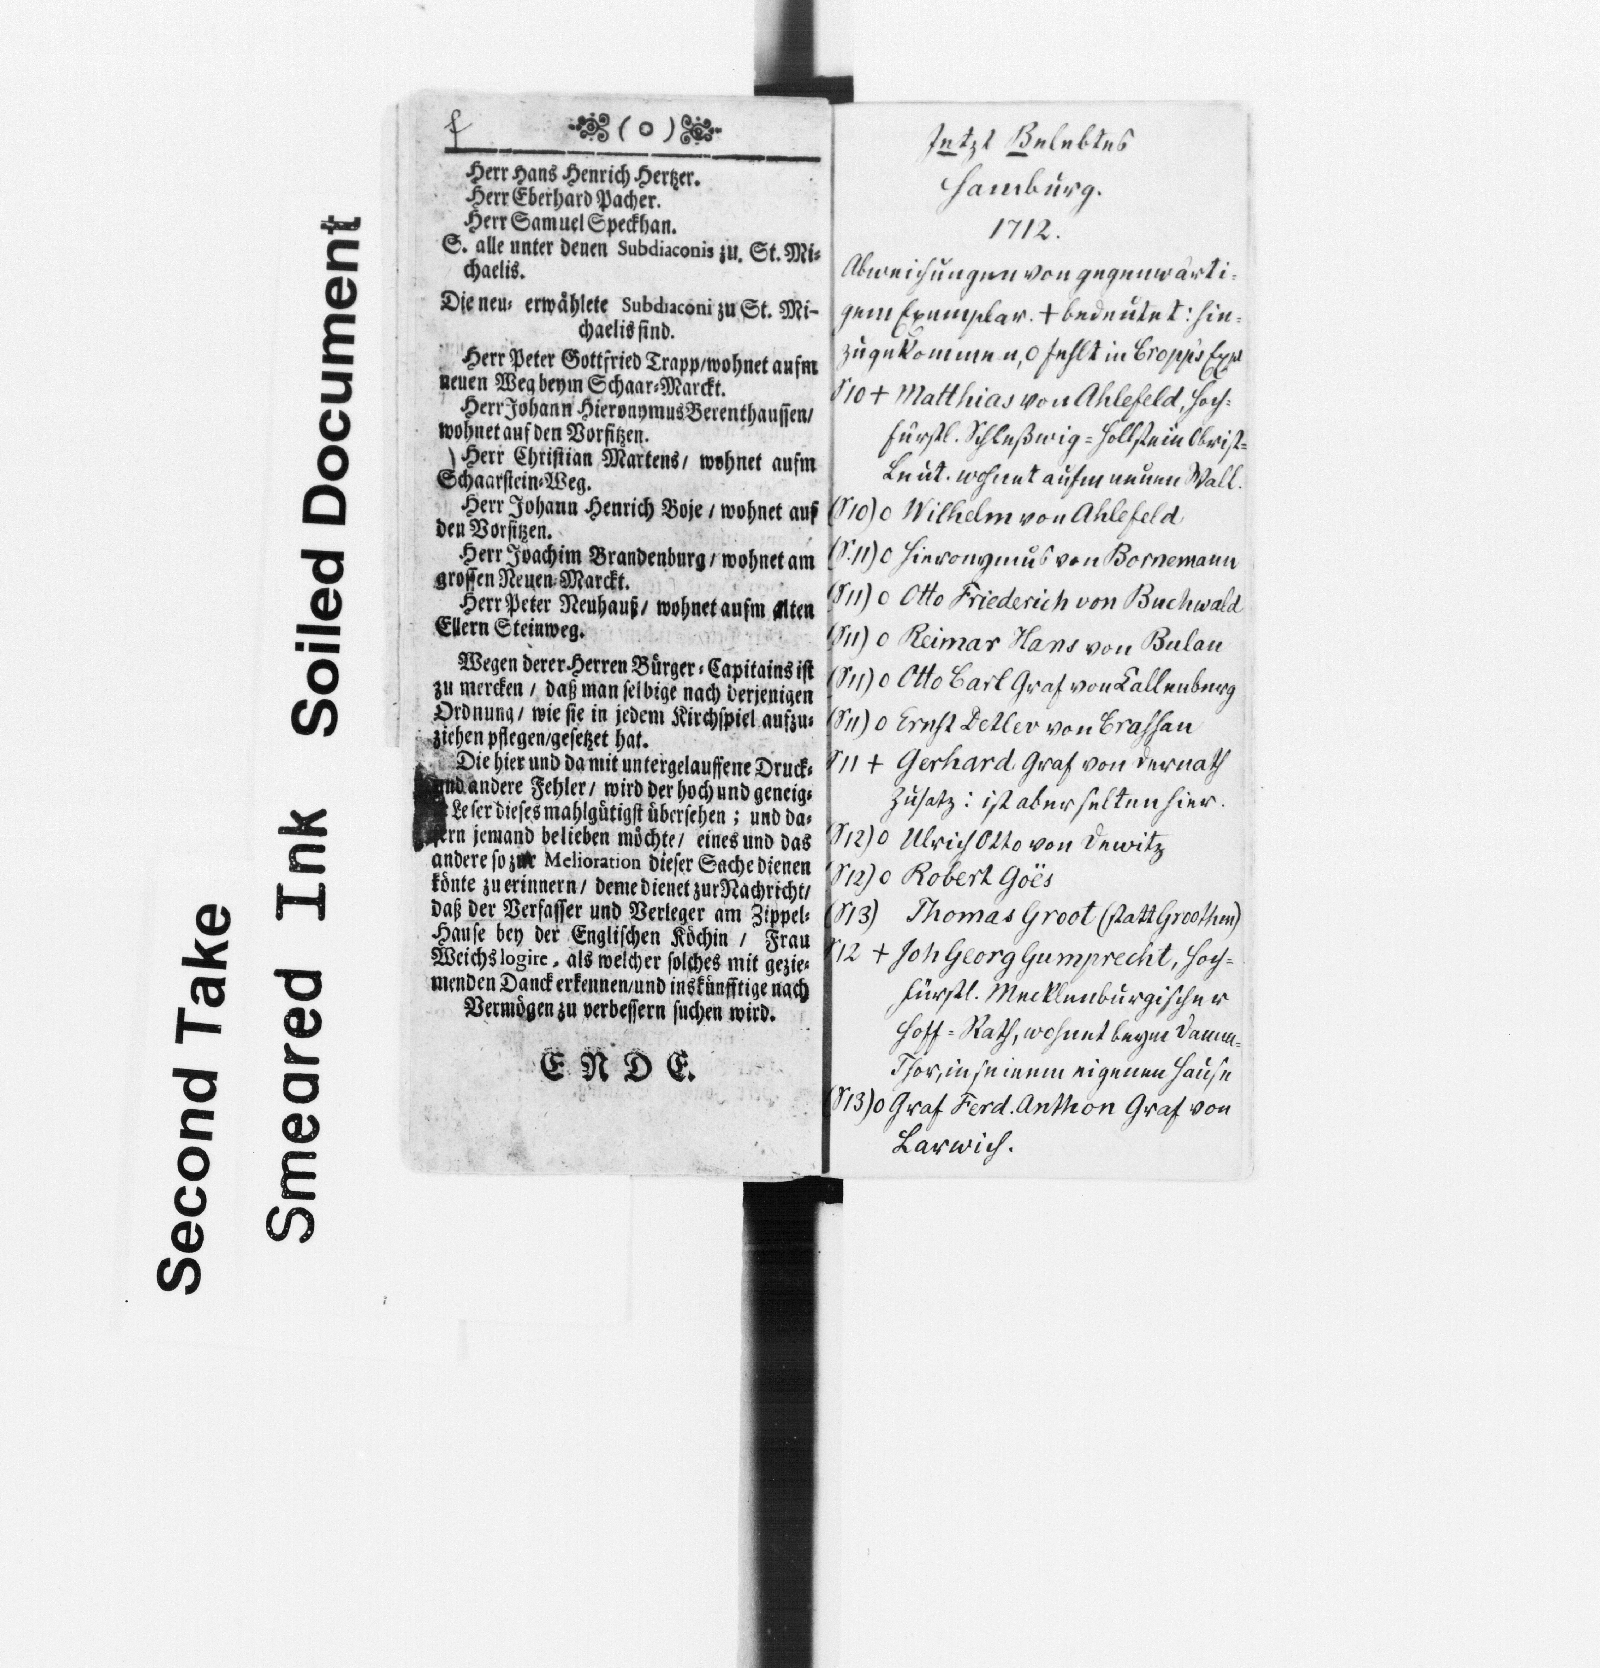 Second Take
Smeared Ink Soiled Document
( o )
Herr Hans Henrich Hertzer.
Herr Eberhard Pacher.
Herr Samuel Speckhan.
S. alle unter denen Subdiaconis zu. St. Mi-
chaelis.
Die neu- erwählete Subdiaconi zu St. Mi-
chaelis sind.
Herr Peter Gottfried Trapp/wohnet aufm
neuen Weg beym Schaar-Marckt.
Herr Johann Hieronymus Berenthaussen/
wohnet auf den Vorsitzen.
Herr Christian Martens/ wohnet aufm
Schaarstein-Weg.
Herr Johann Henrich Boje / wohnet auf
den Vorsitzen.
Herr Joachim Brandenburg / wohnet am
grossen Neuen-Marckt.
Herr Peter Neuhauß/ wohnet aufm alten
Ellern Steinweg.
Wegen derer Herren Bürger-Capitains ist
zu mercken / daß man selbige nach derjenigen
Ordnung/ wie sie in jedem Kirchspiel aufzu-
ziehen pflegen/gesetzet hat.
Die hier und da mit untergelauffene Druck-
und andere Fehler/ wird der hoch und geneig-
Leser dieses mahl gütigst übersehen ; und da-
fern jemand belieben möchte/ eines und das
andere so zur Melioration dieser Sache dienen
könte zu erinnern/ deme dienet zur Nachricht/
daß der Verfasser und Verleger am Zippel-
Hause bey der Englischen Köchin / Frau
Weichs logire, als welcher solches mit gezie-
menden Danck erkennen/und inskünfftige nach
Vermögen zu verbessern suchen wird.
E N D E.
Jetzt Belebtes
Hamburg.
1712.
Abweichungen von gegenwärti-
gem Exemplar. + bedeutet: hin-
zugekommen, o fehlt in Cropp's Expl
S10 + Matthias von Ahlefeld, Hoch-
fürstl. Schleßwig-Hollstein Obrist-
Leut. wohnet aufm neuen Wall.
(S10) o Wilhelm von Ahlefeld
(S.11) o Hieronymus von Bornemann
(S11) o Otto Friederich von Buchwald
(S11) o Reimar Hans von Bulau
(S11) o Otto Carl Graf von Callenberg
(S11) o Ernst Detlev von Crassau
S11 + Gerhard Graf von Dernath
Zusatz: ist aber selten hier.
(S12) o Ulrich Otto von Dewitz
(S12) o Robert Goës
(S13) Thomas Groot (statt Groothen)
S12 + Joh Georg Gumprecht, Hoch-
fürstl. Mecklenburgischer
Hoff-Rath, wohnet beym Damm-
Thor, in seinem eigenen Hause
(S13) o Graf Ferd. Anthon Graf von
Larwich.